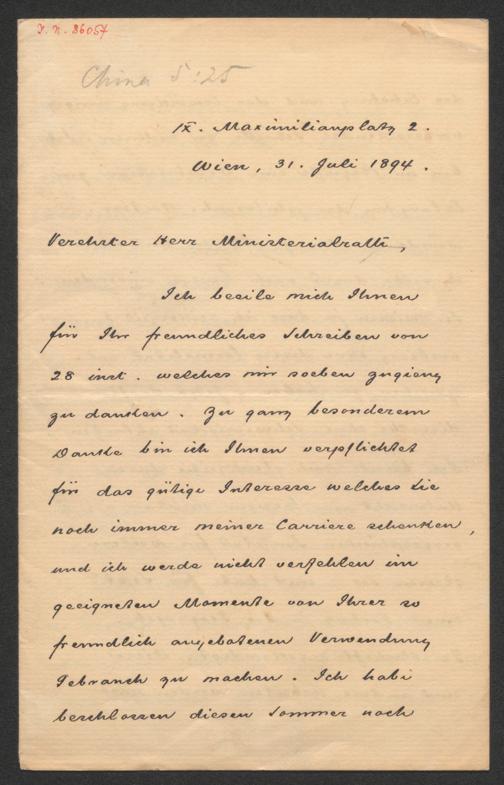 I. N. 86057
China 5:25
IX. Maximilianplatz 2.
Wien, 31. Juli 1894.
Verehrter Herr Ministerialrath,
Ich beeile mich Ihnen
für Ihr freundliches Schreiben von
28 inst. welches mir soeben zugieng
zu danken. Zu ganz besonderem
Danke bin ich Ihnen verpflichtet
für das gütige Interesse welches Sie
noch immer meiner Carriere schenken,
und ich werde nicht verfehlen im
geeigneten Momente von Ihrer so
freundlich angebotenen Verwendung
Gebrauch zu machen. Ich habe
beschlossen diesen Sommer noch